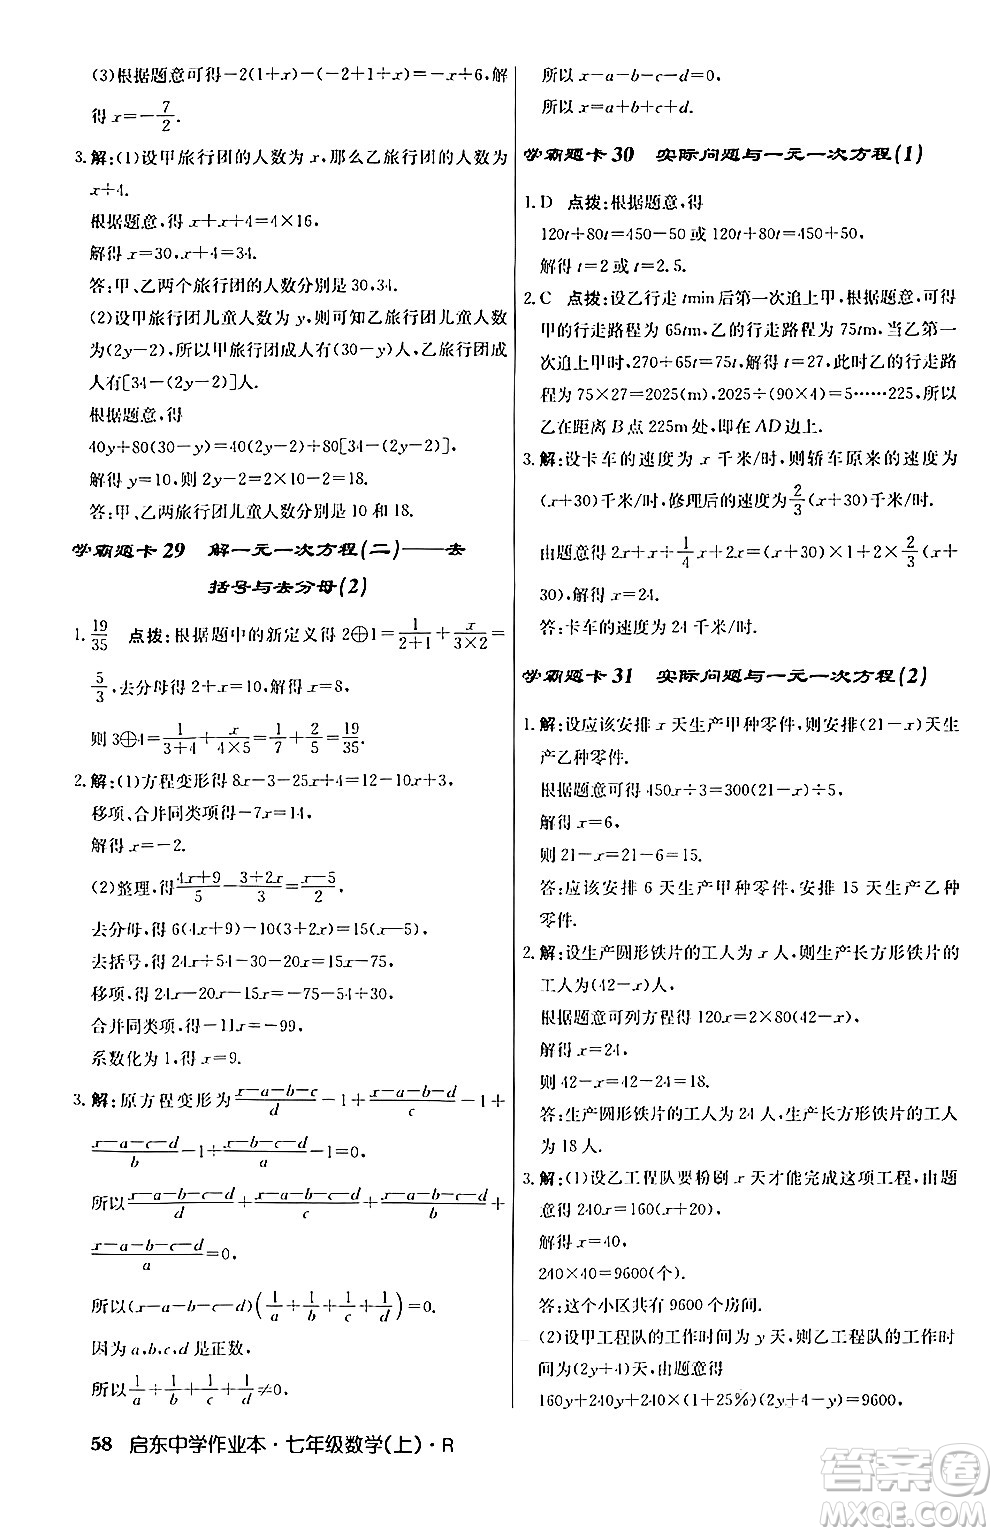 (3)根据题意可得-2(1+x)-(-2+1+x)=-x÷6,解
得 x=-7/2.
3.解:(1)设甲旅行团的人数为 x,那么乙旅行团的人数为
x÷4.
根据题意,得 x+x+4=4×16.
解得 x=30,x+4=34.
答:甲、乙两个旅行团的人数分别是30,34.
(2)设甲旅行团儿童人数为 y,则可知乙旅行团儿童人数
为(2y-2),所以甲旅行团成人有(30-y)人,乙旅行团成
人有[34-(2y-2)]人.
根据题意,得
40y+80(30-y)=40(2y-2)+80[34-(2y-2)].
解得 y=10,所以 2y-2=2×10-2=18.
答:甲、乙两旅行团儿童人数分别是 10 和 18.
学霸题卡 29 解一元一次方程(二)——去
括号与去分母(2)
1. 19/35 点拨:根据题中的新定义得 2⊕1=1/(2+1)+x/(3×2)=
5/3,去分母得 2+x=10,解得 x=8,
则 3⊕4=1/(3+4)+x/(4×5)=1/7+2/5=19/35.
2.解:(1)方程变形得 8x-3-25x+4=12-10x,
移项、合并同类项得-7x=14,
解得 x=-2.
(2)整理,得(4x+9)/5-(3+2x)/3=(x-5)/2,
去分母,得 6(4x+9)-10(3+2x)=15(x-5),
去括号,得 24x÷54-30-20x=15x-75,
移项,得 24x-20x-15x=-75-54÷30,
合并同类项,得-11x=-99,
系数化为 1,得 x=9.
3.解:原方程变形为(x-a-b-c)/d-1+(x-a-b-d)/c-1+
(x-a-c-d)/b-1÷(x-b-c-d)/a-1=0,
所以(x-a-b-c-d)/d+(x-a-b-c-d)/c+(x-a-b-c-d)/b+
(x-a-b-c-d)/a=0,
所以(x-a-b-c-d)(1/a+1/b+1/c+1/d)=0.
因为 a,b,c,d 是正数,
所以1/a+1/b+1/c+1/d≠0,
所以 x-a-b-c-d=0,
所以 x=a+b+c+d.
学霸题卡 30 实际问题与一元一次方程(1)
1.D 点拨:根据题意,得
120t+80t=450-50 或 120t+80t=450+50,
解得 t=2 或 t=2.5.
2.C 点拨:设乙行走 tmin后第一次追上甲,根据题意,可得
甲的行走路程为 65tm,乙的行走路程为 75tm,当乙第一
次追上甲时,270÷65t=75t,解得 t=27,此时乙的行走路
程为 75×27=2025(m),2025÷(90×4)=5……225,所以
乙在距离 B 点 225m 处,即在 AD 边上.
3.解:设卡车的速度为 x 千米/时,则轿车原来的速度为
(x+30)千米/时,修理后的速度为2/3(x+30)千米/时.
由题意得 2x+1/4x+2x=(x+30)×1+2×2/3(x+
30),解得 x=24.
答:卡车的速度为 24 千米/时.
学霸题卡 31 实际问题与一元一次方程(2)
1.解:设应该安排 x 天生产甲种零件,则安排(21-x)天生
产乙种零件.
根据题意可得 450x÷3=300(21-x)÷5.
解得 x=6,
则 21-x=21-6=15.
答:应该安排 6 天生产甲种零件,安排 15 天生产乙种
零件.
2.解:设生产圆形铁片的工人为 x 人,则生产长方形铁片的
工人为(42-x)人,
根据题意可列方程得 120x=2×80(42-x),
解得 x=24,
则 42-x=42-24=18.
答:生产圆形铁片的工人为 24 人,生产长方形铁片的工人
为 18 人.
3.解:(1)设乙工程队要粉刷 x 天才能完成这项工程,由题
意得 240x=160(x+20),
解得 x=40,
240×40=9600(个).
答:这个小区共有 9600 个房间.
(2)设甲工程队的工作时间为 y 天,则乙工程队的工作时
间为(2y+4)天,由题意得
160y+240y+240×(1+25%)(2y+4-y)=9600,
58 启东中学作业本·七年级数学(上)·R
答案圈
MXQE.COM